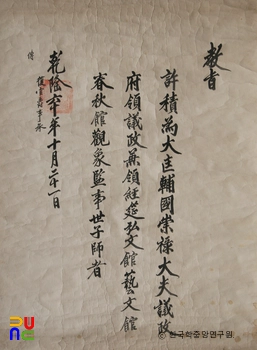 敎旨
許積爲大匡輔國崇祿大夫議政
府領議政兼領經筵弘文館藝文館
春秋館觀象監事世子師者
乾隆六十年十月二十一日
傳
PUNC
© 한국학중앙연구원